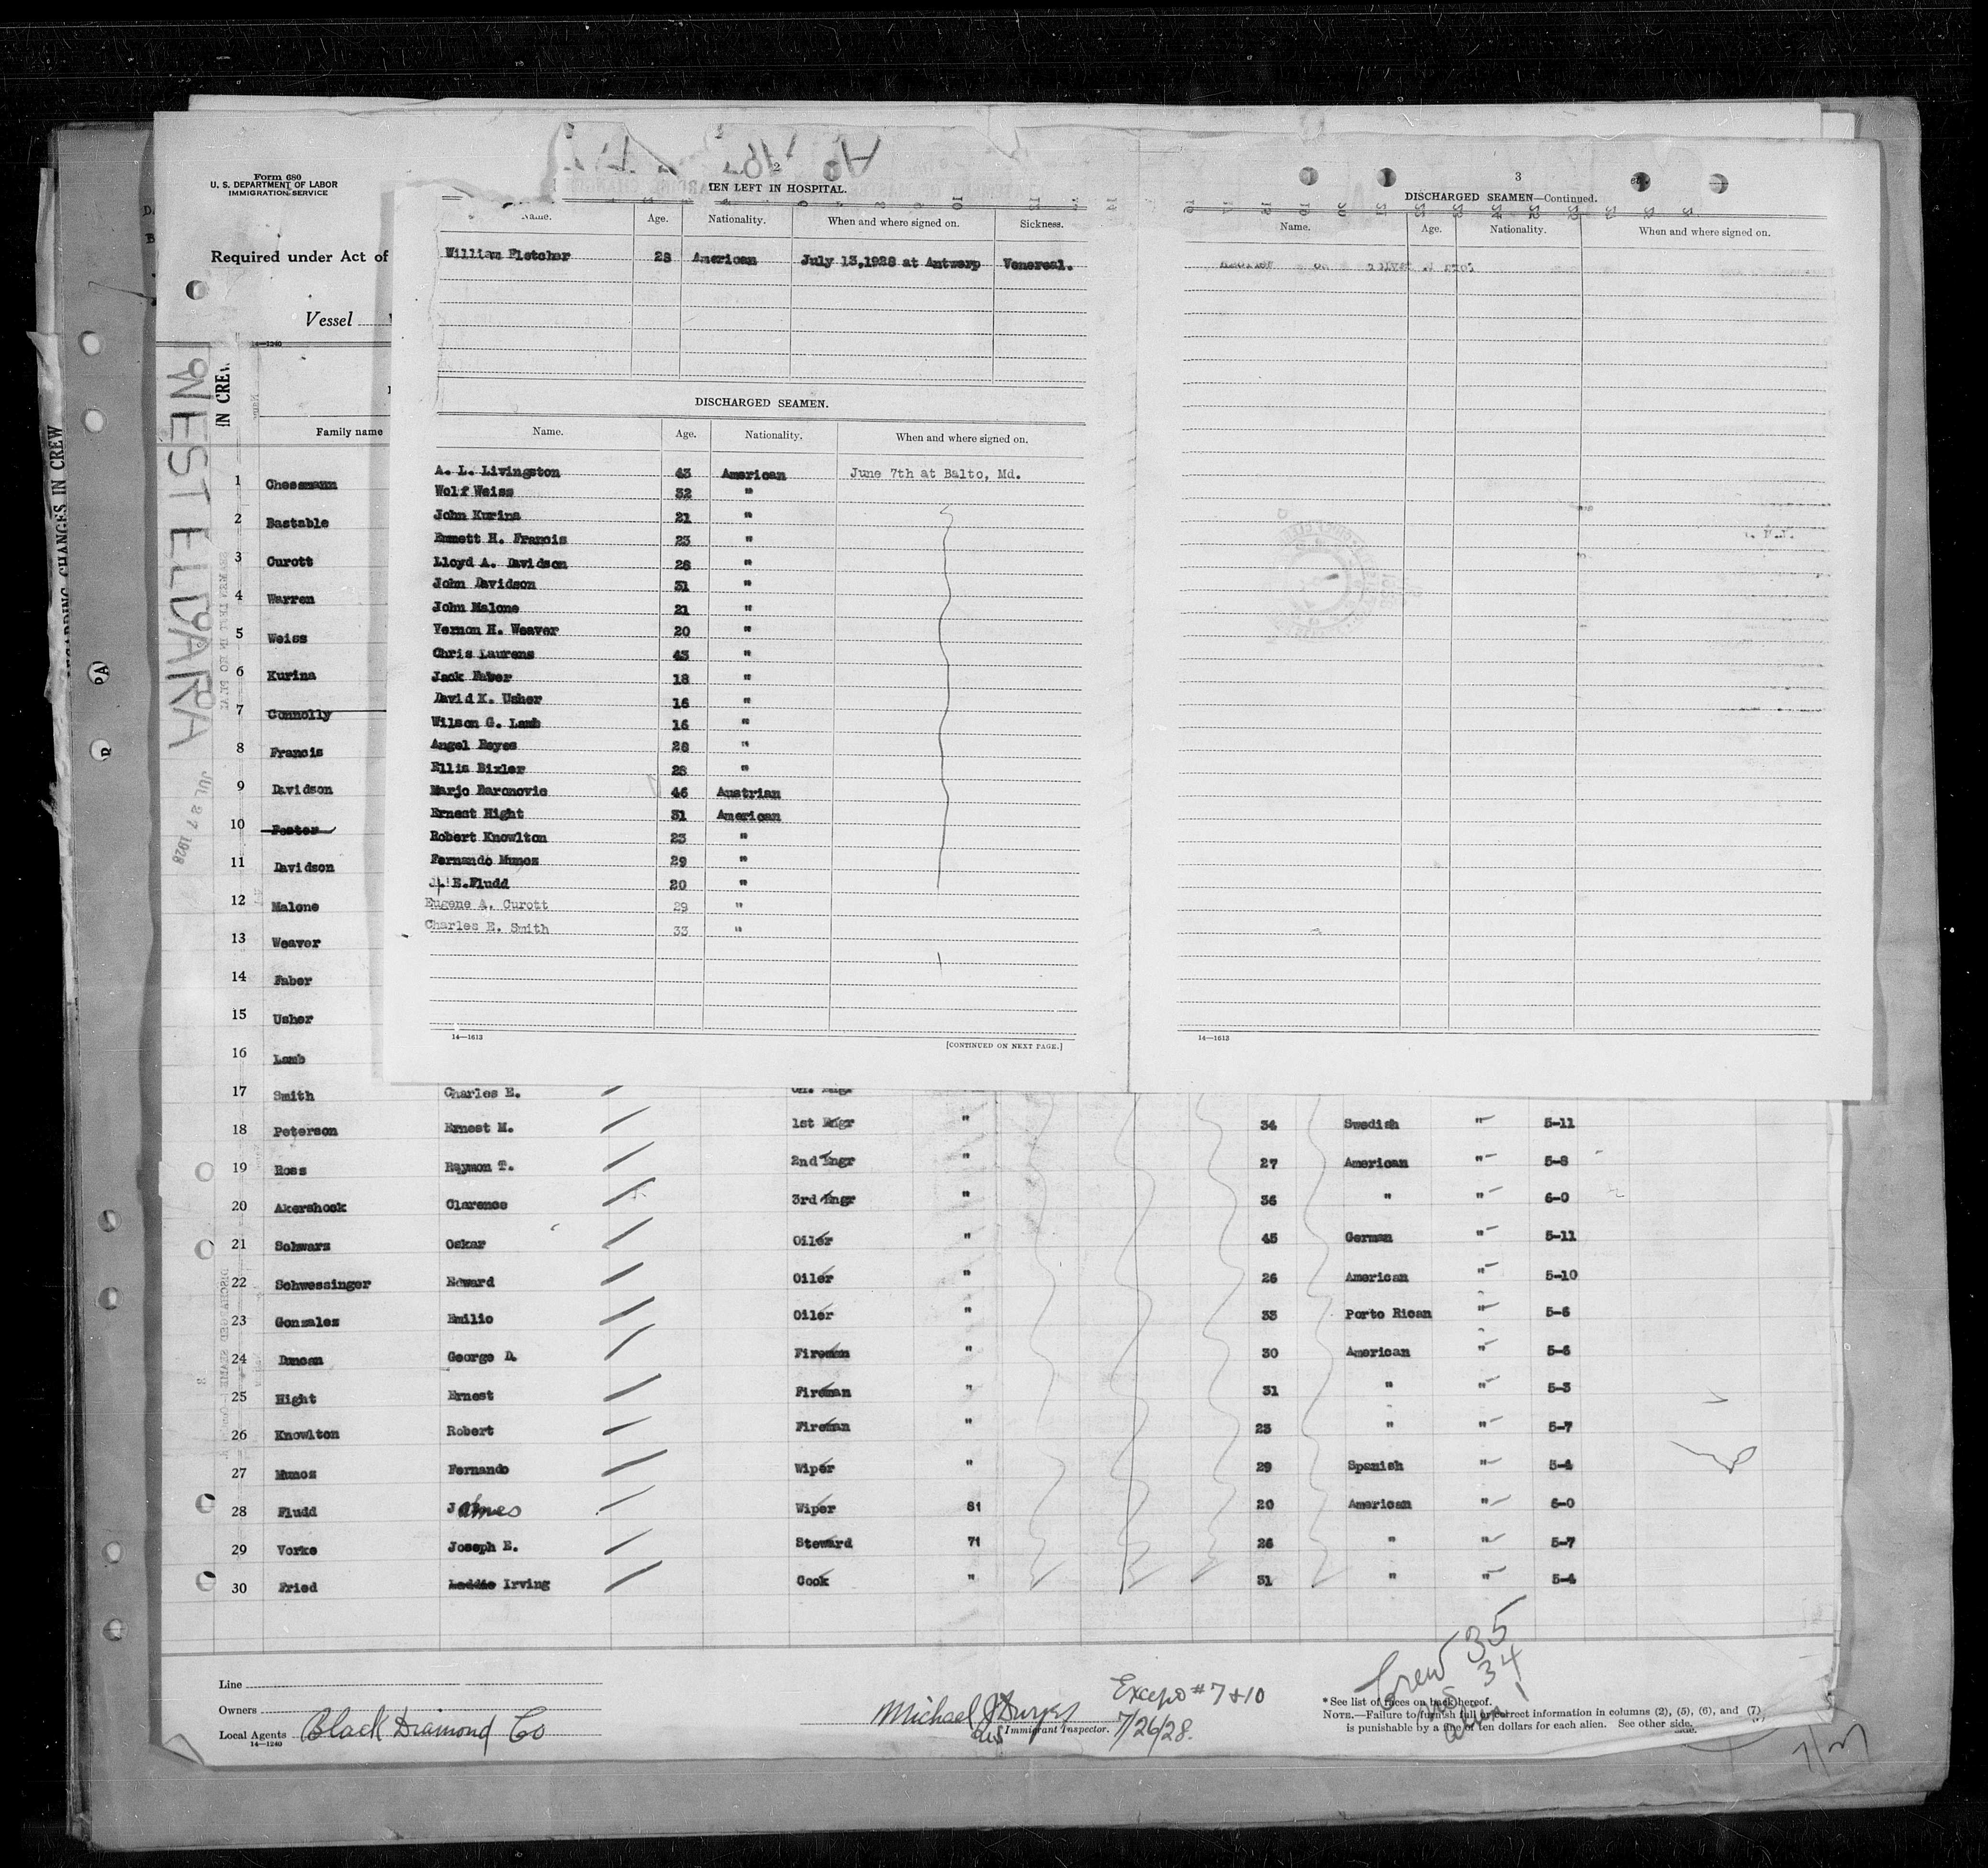 Form 680
U. S. DEPARTMENT OF LABOR
IMMIGRATION SERVICE
Required under Act of
Vessel
14—1240
IN CREW
REGARDING CHANGES IN CREW
WEST ELDARA
JUL 27 1928
Family name
1 Chessmann
2 Bastable
3 Curott
4 Warren
5 Weiss
6 Kurina
7 Connolly
8 Francis
9 Davidson
10 Foster
11 Davidson
12 Malone
13 Weaver
14 Faber
15 Usher
16 Lamb
2
MEN LEFT IN HOSPITAL.
Name. Age. Nationality. When and where signed on. Sickness.
William Fletcher 28 American July 13,1928 at Antwerp Venereal.
DISCHARGED SEAMEN.
Name. Age. Nationality. When and where signed on.
A. L. Livingston 43 American June 7th at Balto, Md.
Wolf Weiss 32 "
John Kurina 21 "
Emmett H. Francis 23 "
Lloyd A. Davidson 28 "
John Davidson 31 "
John Malone 21 "
Vernon H. Weaver 20 "
Chris Laurens 43 "
Jack Faber 18 "
David K. Usher 16 "
Wilson G. Lamb 16 "
Angel Reyes 28 "
Ellis Bixler 28 "
Marjo Baronovic 46 Austrian
Ernest Hight 31 American
Robert Knowlton 23 "
Fernando Munoz 29 "
J. E.Fludd 20 "
Eugene A. Curott 29 "
Charles E. Smith 33 "
14—1613
[CONTINUED ON NEXT PAGE.]
3
DISCHARGED SEAMEN—Continued.
Name. Age. Nationality. When and where signed on.
14—1613
17 Smith Charles E. Ch. Engr
18 Peterson Ernest M. 1st Engr " 34 Swedish " 5-11
19 Ross Raymon T. 2nd Engr " 27 American " 5-8
20 Akershock Clarence 3rd Engr " 36 " " 6-0
21 Schwarz Oskar Oiler " 45 German " 5-11
22 Schwessinger Edward Oiler " 26 American " 5-10
23 Gonzales Emilio Oiler " 33 Porto Rican " 5-6
24 Duncan George D. Fireman " 30 American " 5-6
25 Hight Ernest Fireman " 31 " " 5-3
26 Knowlton Robert Fireman " 23 " " 5-7
27 Munoz Fernando Wiper " 29 Spanish " 5-4
28 Fludd James Wiper 81 20 American " 6-0
29 Vorke Joseph E. Steward 71 26 " " 5-7
30 Fried Laddie Irving Cook " 31 " " 5-4
Line
Owners
Local Agents Black Diamond Co
14—1240
Except #7 & 10
Immigrant Inspector.
7/26/28.
Crew 35
US 34
alien 1
* See list of races on back hereof.
NOTE.—Failure to furnish full or correct information in columns (2), (5), (6), and (7)
is punishable by a fine of ten dollars for each alien. See other side.
7/27